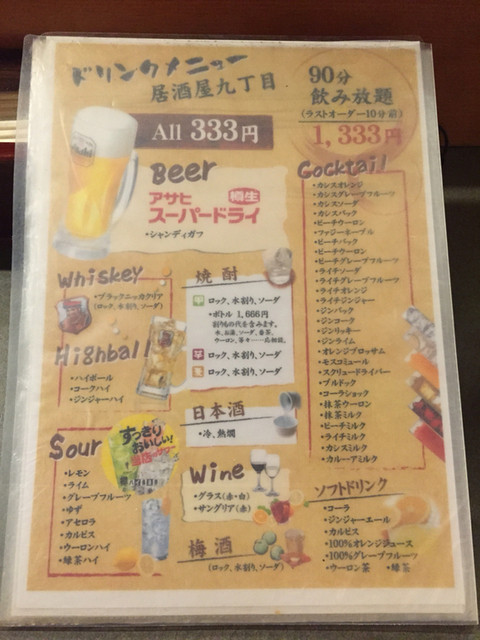 ドリンクメニュー
居酒屋九丁目
90分
飲み放題
(ラストオーダー10分前)
1,333円
All 333円
Beer
アサヒ 樽生
スーパードライ
・シャンディガフ
Whiskey
・ブラックニッカクリア
(ロック、水割り、ソーダ)
Highball
・ハイボール
・コークハイ
・ジンジャーハイ
Sour
すっきり
おいしい!
・レモン
・ライム
・グレープフルーツ
・ゆず
・アセロラ
・カルピス
・ウーロンハイ
・緑茶ハイ
焼酎
ロック、水割り、ソーダ
・ボトル 1,666円
割りもの代を含みます。
水、お湯、ソーダ、番茶、
ウーロン、等々……応相談。
芋 ロック、水割り、ソーダ
麦 ロック、水割り、ソーダ
日本酒
・冷、熱燗
Wine
・グラス(赤・白)
・サングリア(赤)
梅酒
(ロック、水割り、ソーダ)
Cocktail
・カシスオレンジ
・カシスグレープフルーツ
・カシスソーダ
・カシスバック
・ピーチウーロン
・ファジーネーブル
・ピーチバック
・ピーチウーロン
・ピーチグレープフルーツ
・ライチソーダ
・ライチグレープフルーツ
・ライチオレンジ
・ライチジンジャー
・ジンバック
・ジンコーク
・ジンリッキー
・ジンライム
・オレンジブロッサム
・モスコミュール
・スクリュードライバー
・ブルドック
・コーラショック
・抹茶ウーロン
・抹茶ミルク
・ピーチミルク
・ライチミルク
・カシスミルク
・カルーアミルク
ソフトドリンク
・コーラ
・ジンジャーエール
・カルピス
・100%オレンジジュース
・100%グレープフルーツ
・ウーロン茶 ・緑茶